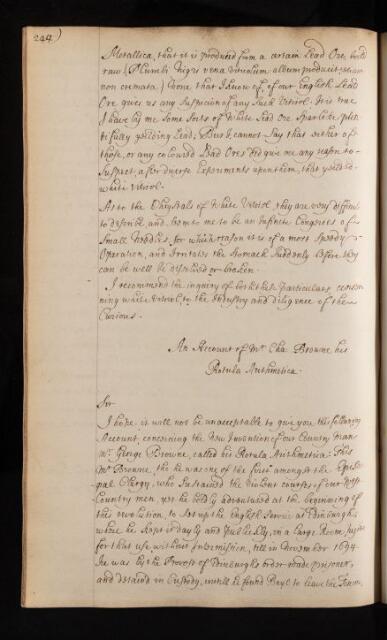 244)
Metallica, that it is produced from a certain Lead Ore, both
raw (Plumbi Nigri vena vitriolum album producit etiam
non cremata) None that I know of, of our English Lead
Ore gives us any Suspicion of any Such Vitriol. It is true
I have by me Some Sorts of White Lead Ore Sparlike plen
tifully yeilding Lead; But I cannot Say that either of
those, or any coloured Lead Ores did give me any reason to
Suspect, after diverse Experiments upon them, that yeilded
white vitriol.
As to the Chrystals of White Vitriol they are very difficult
to describe, and seem to me to be an infinite Congeries of
Small Needles, for which reason it is of a most Speedy
Operation, and Irritates the Stomack Suddenly before they
can be well be dissolved or broken.
I recommend the inquery of both these Particulars concer
ning white vitriol, to the Industry and diligence of the
Curious.
An Account of Mr Cha Browne his
Rotula Arithmetica.
Sir
I hope it will not be unacceptable to give you the following
Account, concerning the New Invention of our Country man
Mr George Browne, called his Rotula Arithmetica: This
Mr Browne, tho he was one of the first amongst the Episco
pal Clergy, who Sustained the divers courses of our
Country men, yet he boldly adventured at the beginning of
this revolution, to Set up the English Service at Edinburgh,
where he kept it dayly and Publickly, in a large Room
for that use, without Intermission, till in November 1694.
he was by the Provost of Edinburghs order made prisoner,
and detained in Custody, untill he found Bayl to leave the Town.